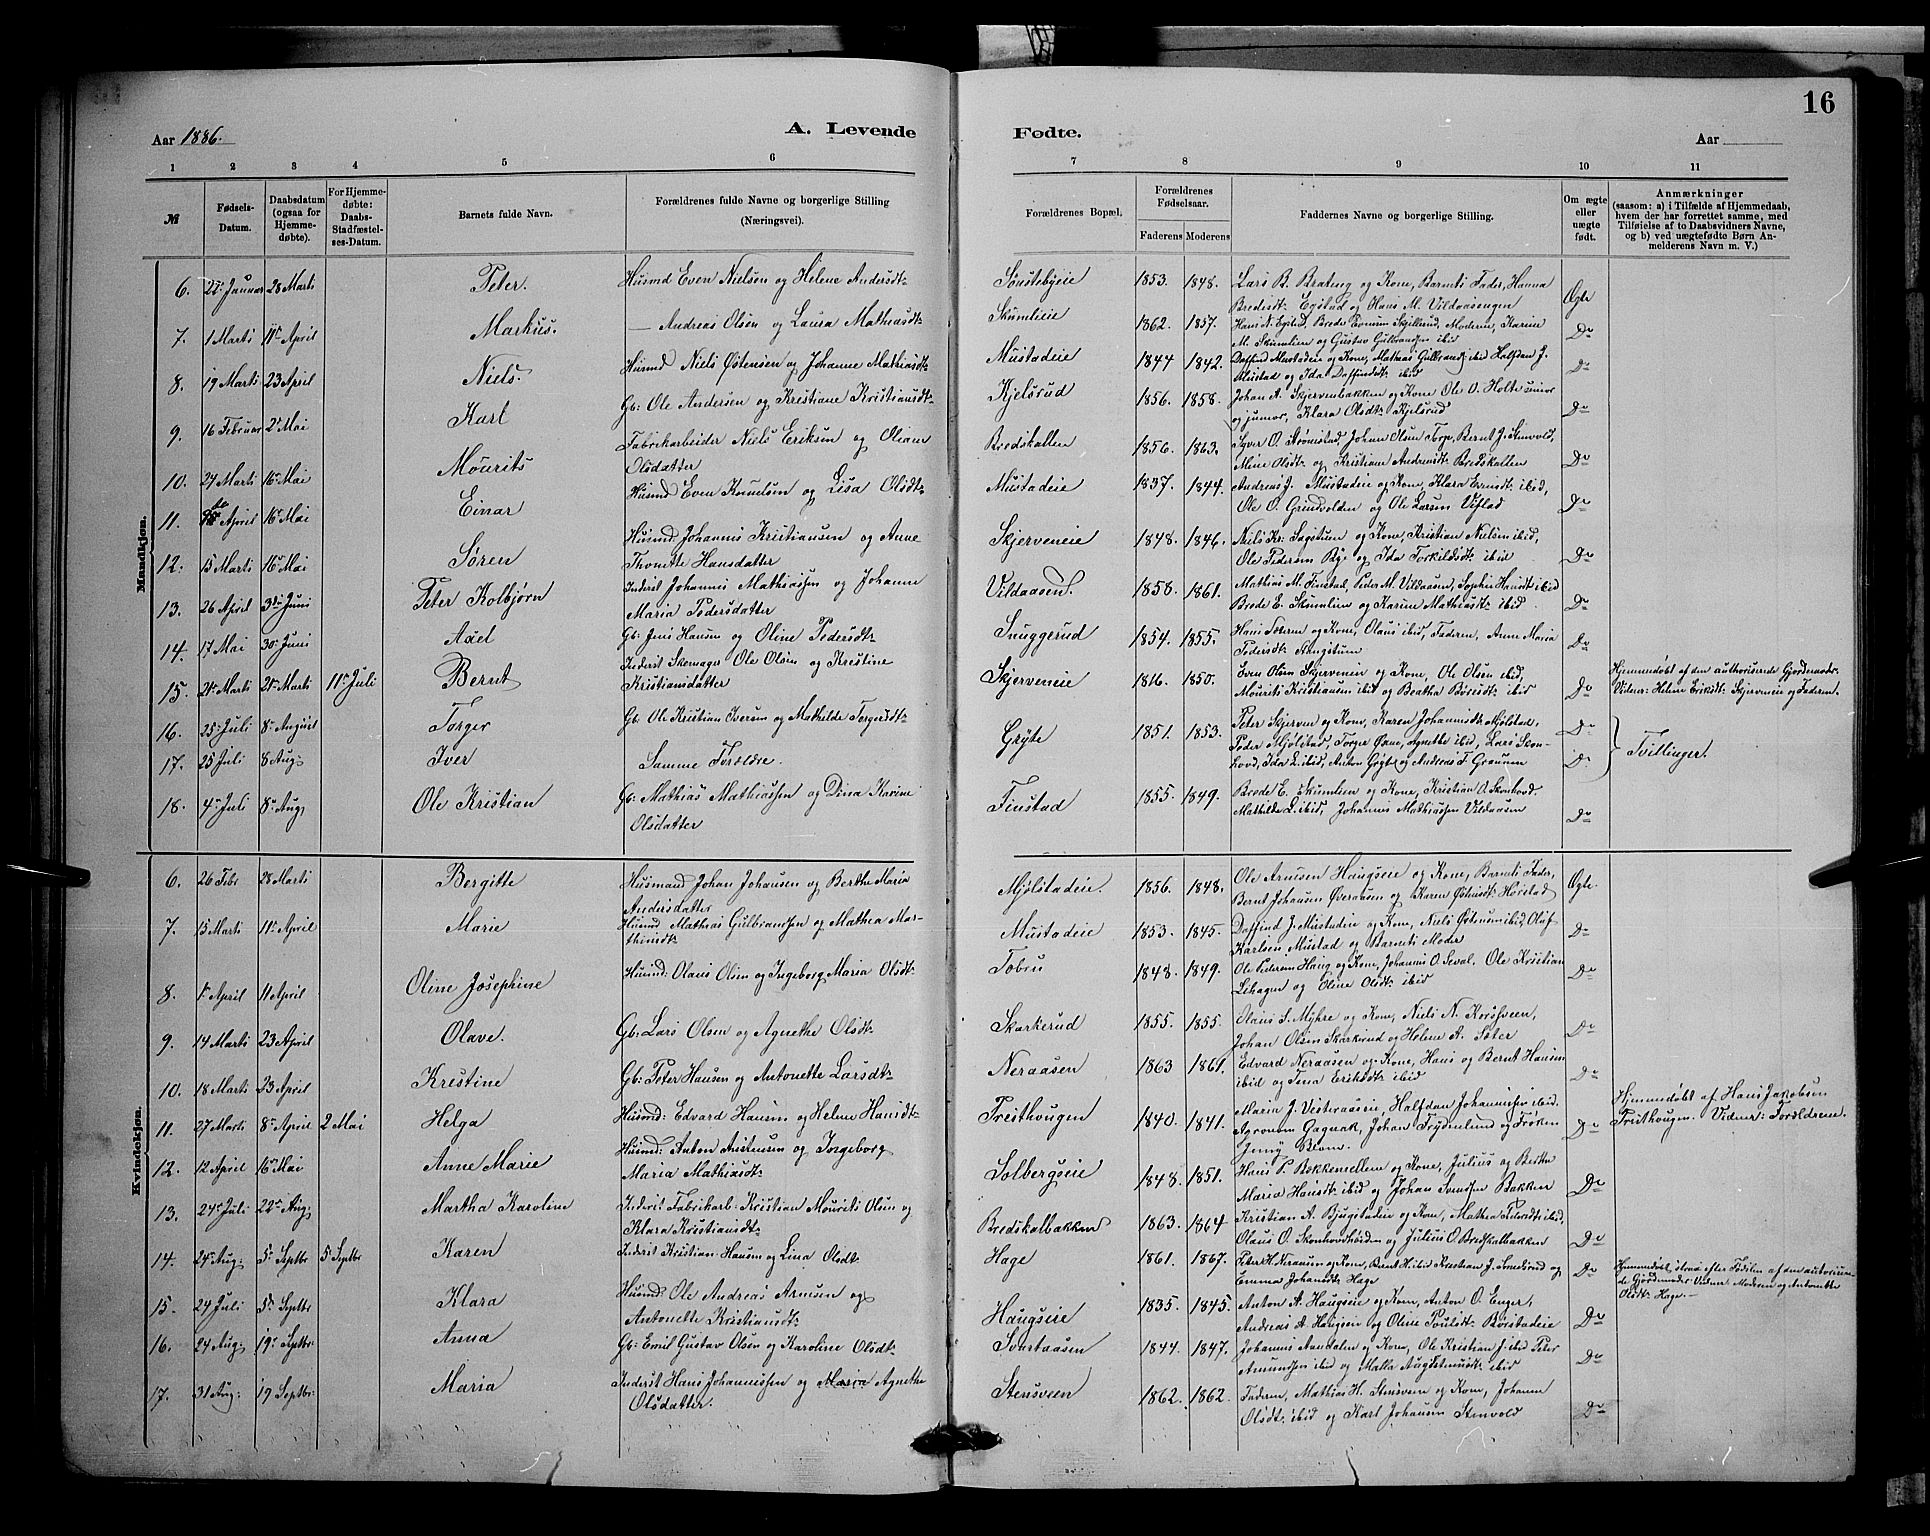 16
Aar 1886.
A. Levende
Fødte.
Aar
1 2 3 4 5 6 7 8 9 10 11
№
Fødsels-Datum.
Daabsdatum (ogsaa for Hjemmedøbte).
For Hjemmedøbte: Daabs-Stadfæstelses-Datum.
Barnets fulde Navn.
Forældrenes fulde Navne og borgerlige Stilling (Næringsvei).
Forældrenes Bopæl.
Forældrenes Fødselsaar.
Faderens Moderens
Faddernes Navne og borgerlige Stilling.
Om ægte eller uægte født.
Anmærkninger
(saasom: a) i Tilfælde af Hjemmedaab, hvem der har forrettet samme, med Tilføielse af to Daabsvidners Navne, og b) ved uægtefødte Børn Anmelderens Navn m. V.)
Mandkjøn.
6. Januar 28 Marti Peter. Husmd Even Nielsen og Helene Andersdt. Sønstebyeie 1853. 1848. Lars B. Brateng og Kone, Barnets Fader, Hanna Egstad og Hans M. Vildaasengen Ægte
7. 1 Marts 11 April Markus. — Andreas Olsen og Laura Mathiasdt. Skumlieie 1862. 1857. Hans N. Egstad, Brede Evensen Skjellerud, Moderen, Karine M. Skumlien og Gustav Gulbrandsen ibid Do
8. 19 Marts 23 April Niels. Husmd Niels Østensen og Johanne Mathiasdt. Mustadeie 1844 1842. Daffind Mustadeie og Kone, Mathias Gulbrands. ibid Halfdan J. Mustad og Ida Daffindsdt. ibid Do
9. 16 Februar 2 Mai Karl Gb: Ole Andersen og Kristiane Kristiansdt. Kjelsrud 1856. 1858. Johan A. Skjervenbakken og Kone Ole O. Holte senior og junior, Klara Olsdt. Kjelsrud Do
10. 24 Marts 16 Mai Mourits Fabrikarbeider Niels Eriksen og Oliane Olsdatter Bredskallen 1856. 1863. Syver O. Strømstad, Johan Olsen Torp, Bernt J. Stenvold, Mine Olsdt. og Kristiane Andreasdt. Bredskallen Do
11. April 16 Mai Einar Husmd Even Kornelsen og Lisa Olsdt. Mustadeie 1837. 1844. Andreas J. Mustadeie og Kone, Klara Evensdt. ibid, Ole O. Grindvolden og Ole Larsen Vifstad Do
12. 15 Marts 16 Mai Søren Husmd Johannes Kristiansen og Anne Thonette Hansdatter Skjerveneie 1848. 1846. Niels Kr. Sagstuen og Kone, Kristian Nielsen ibid, Ole Pedersen Bye og Ida Torkildsdt. ibid Do
13. 26 April 3 Juni Peter Kolbjørn Inderst Johannes Mathiassen og Johanne Maria Pedersdatter Vildaasen. 1858. 1861. Mathias M. Finstad, Peder M. Vildaasen, Sophie Hansdt ibid Brede E. Skumlien og Karine Mathiasdt. ibid Do
14. 17 Mai 30 Juni Axel Gb: Jens Hansen og Oline Pedersdt. Snuggerud 1854. 1855. Hans Sæteren og Kone, Olaus ibid, Faderen, Anne Maria Pedersdt. Haugstuen Do
15. 21 Marts 21 Marts 11 Juli Bernt Inderst Skomager Ole Olsen og Kristine Kristiansdatter Skjerveneie 1816. 1850. Even Olsen Skjerveneie og Kone, Ole Olsen ibid, Mourits Kristiansen ibid og Beatha Børesdt. ibid Do Hjemmedøbt af den authoriserede Gjordemoder. Vidner: Helene Eriksdt. Skjerveneie og Faderen.
16. 25 Juli 8 August Torger Gb: Ole Kristian Iversen og Mathilde Torgersdt. Gryte 1851. 1853. Peter Skjerven og Kone, Karen Johannesdt. Mjølstad, Do
17. 25 Juli 8 Aug: Iver Samme Forældre. Peder Mjølstad, Torger Øxne, Agnethe ibid, Lars Skonhovd, Ida L. ibid, Anton Gryte og Andreas F. Graunen Do Tvillinger.
18. 4 Juli 8 Aug: Ole Kristian Gb: Mathias Mathiassen og Dina Karine Olsdatter Finstad 1855. 1849. Brede E. Skumlien og Kone, Kristian O. Skonhovd. Mathilde L. ibid, Johannes Mathiassen Vildaasen Do
Kvindekjøn.
6. 26 Febr 28 Marts Bergitte Husmand Johan Johansen og Berthe Maria Andersdatter Mjølstadeie. 1856. 1848. Ole Arnesen Haugseie og Kone, Barnets Fader, Bernt Johansen Øveraasen og Karen Østensdt. Harstad Ægte.
7. 15 Marts 11 April Marie Husmd Mathias Gulbrandsen og Mathea Marthinsdt. Mustadeie 1853. 1845. Daffind J. Mustadeie og Kone, Niels Østensen ibid, Oluf Karlsen Mustad og Barnets Moder Do
8. 1 April 11 April Oline Josephine Husmd: Olaus Olsen og Ingeborg Maria Olsdt. Tobru 1848. 1849. Ole Pedersen Haug og Kone, Johannes O. Seval, Ole Kristian Lihagen og Eline Olsdt. ibid Do
9. 14 Marts 23 April Olave. Gb: Lars Olsen og Agnethe Olsdt. Skarkerud 1855. 1855. Olaus S. Myhre og Kone, Niels N. Korsveen, Johan Olsen Skarkerud og Helene A. Sæter Do
10. 18 Marts 23 April Kristine Gb: Peter Hansen og Antonette Larsdt. Neraasen 1863 1861. Edvard Neraasen og Kone, Hans og Bernt Hansen ibid og Tena Eriksdt. ibid Do
11. 27 Marts 8 April 2 Mai Helga Husmd: Edvard Hansen og Helene Hansdt. Presthougen 1840. 1841. Maria J. Vesteraaseie, Halfdan Johannesen ibid, Agronom Gagnak, Johan Frydenlund og Frøken Jenny Blom. Do Hjemmedøbt af Hans Jakobsen Presthougen. Vidner: Forældrene.
12. 12 April 16 Mai Anne Marie Husmd: Anton Anstensen og Ingeborg Maria Mathiasdt. Solbergseie 1848. 1851. Hans P. Bakkemellem og Kone, Julius og Berthe Maria Hansdt. ibid og Johan Svendsen Bakken Do
13. 24 Juli 22 Aug: Martha Karoline Inderst Fabrikarb: Kristian Mourits Olsen og Klara Kristiansdt. Bredskalbakken 1863. 1864 Kristian A. Bjugstadeie og Kone, Mathea Pedersdt. ibid, Olaus O. Skonhovdhøiden og Julius O. Bredskalbakken Do
14. 24 Aug: 5 Septbr 5 Septbr Karen Inderst Kristian Hansen og Lina Olsdt Hage 1861. 1867. Peter H. Neraasen og Kone, Bernt H. ibid Kristian J. Smedsrud og Emma Johansdt. Hage Do Hjemmedøbt strax efter Fødslen af den autoriserede Gjordemoder Vidner Moderen og Antonette Olsdt. Hage. —
15. 24 Juli 5 Septbr Klara Husmd: Ole Andreas Arnesen og Antonette Kristiansdt. Haugseie 1835. 1845. Anton A. Haugseie og Kone, Anton O. Enger, Andreas A. Haugseie og Oline Poulsdt. Børstadeie Do
16. 24 Aug: 19 Septbr: Anna Gb: Emil Gustav Olsen og Karoline Olsdt. Svartaasen 1844. 1847. Johannes Aandalen og Kone, Ole Kristian J. ibid Peter Amundsen ibid og Malla ibid Do
17. 31 Aug: 19 Septbr: Maria Inderst Hans Johannessen og Maria Agnethe Olsdatter. Stensveen 1862. 1862. Faderen, Mathias H. Stensveen og Kone, Johanne Olsdt. ibid og Karl Johansen Stenvold Do